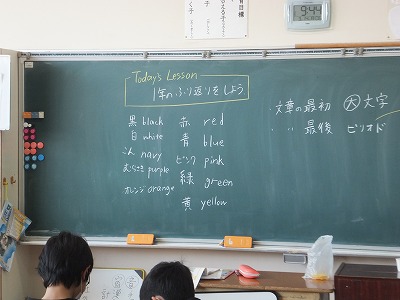 9:44
Today's Lesson
1年のふり返りをしよう
黒 black
白 white
こん navy
むらさき purple
オレンジ orange
赤 red
青 blue
ピンク pink
緑 green
黄 yellow
・文章の最初 大 大文字
・ 〃 最後 ピリオド